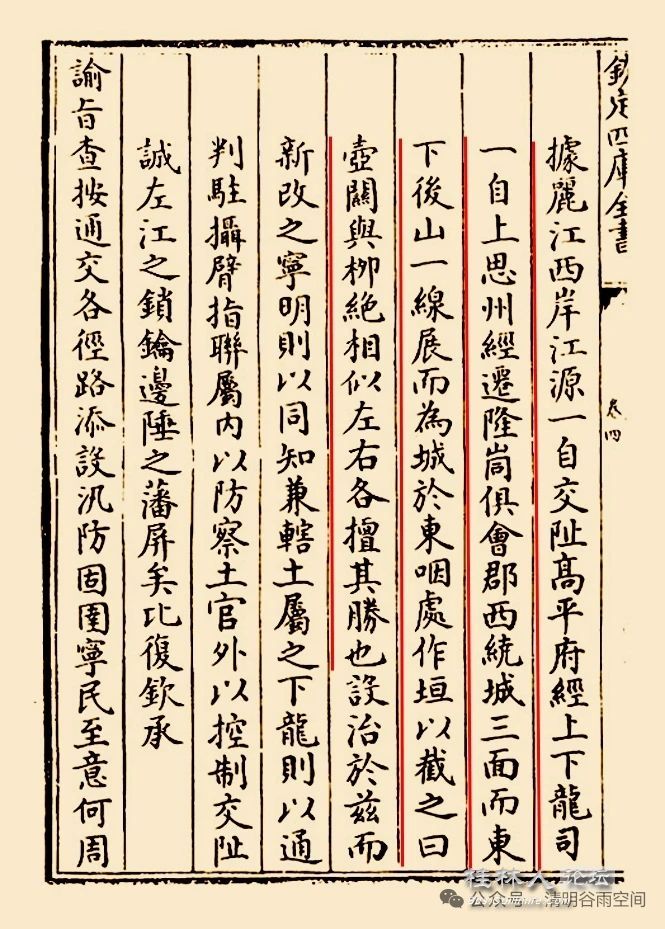 欽定四庫全書
卷四
據麗江西岸江源一自交阯高平府經上下龍司
一自上思州經遷隆峝俱會郡西繞城三面而東
下後山一線展而為城於東咽處作垣以截之曰
壺關與柳絶相似左右各擅其勝也設治於兹而
新改之寧明則以同知兼轄土屬之下龍則以通
判駐攝臂指聯屬内以防察土官外以控制交阯
誠左江之鎖鑰邊陲之藩屏矣比復欽承
諭旨查按通交各徑路添設汛防固圉寧民至意何周
桂林人论坛
公众号 · 清明谷雨空间